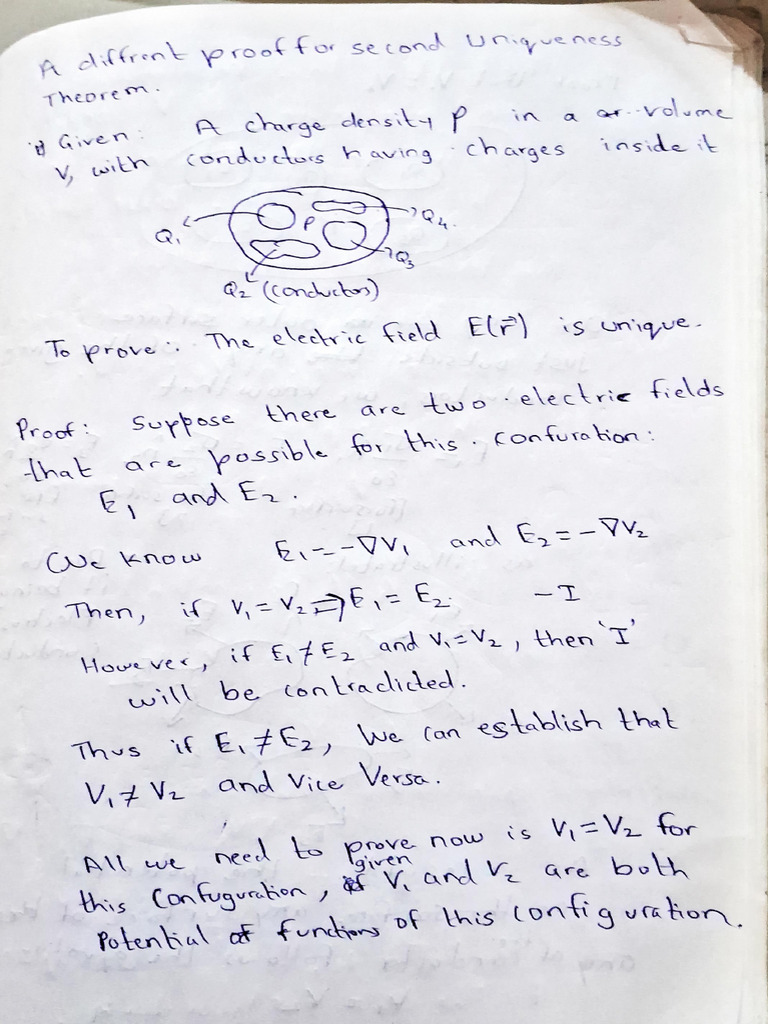 A diffrent proof for second Uniqueness
Theorem.
Given: A charge density ρ in a volume
V, with conductors having charges inside it
Q₁ ρ Q₄
Q₃
Q₂ (conductors)
To prove: The electric field E(r⃗) is unique.
Proof: Suppose there are two electric fields
that are possible for this confuration:
E₁ and E₂.
We know E₁ = -∇V₁ and E₂ = -∇V₂
Then, if V₁ = V₂ ⇒ E₁ = E₂. - I
However, if E₁ ≠ E₂ and V₁ = V₂, then 'I'
will be contradicted.
Thus if E₁ ≠ E₂, We can establish that
V₁ ≠ V₂ and Vice Versa.
All we need to prove now is V₁ = V₂ for
this Confuguration, given V₁ and V₂ are both
Potential functions of this configuration.